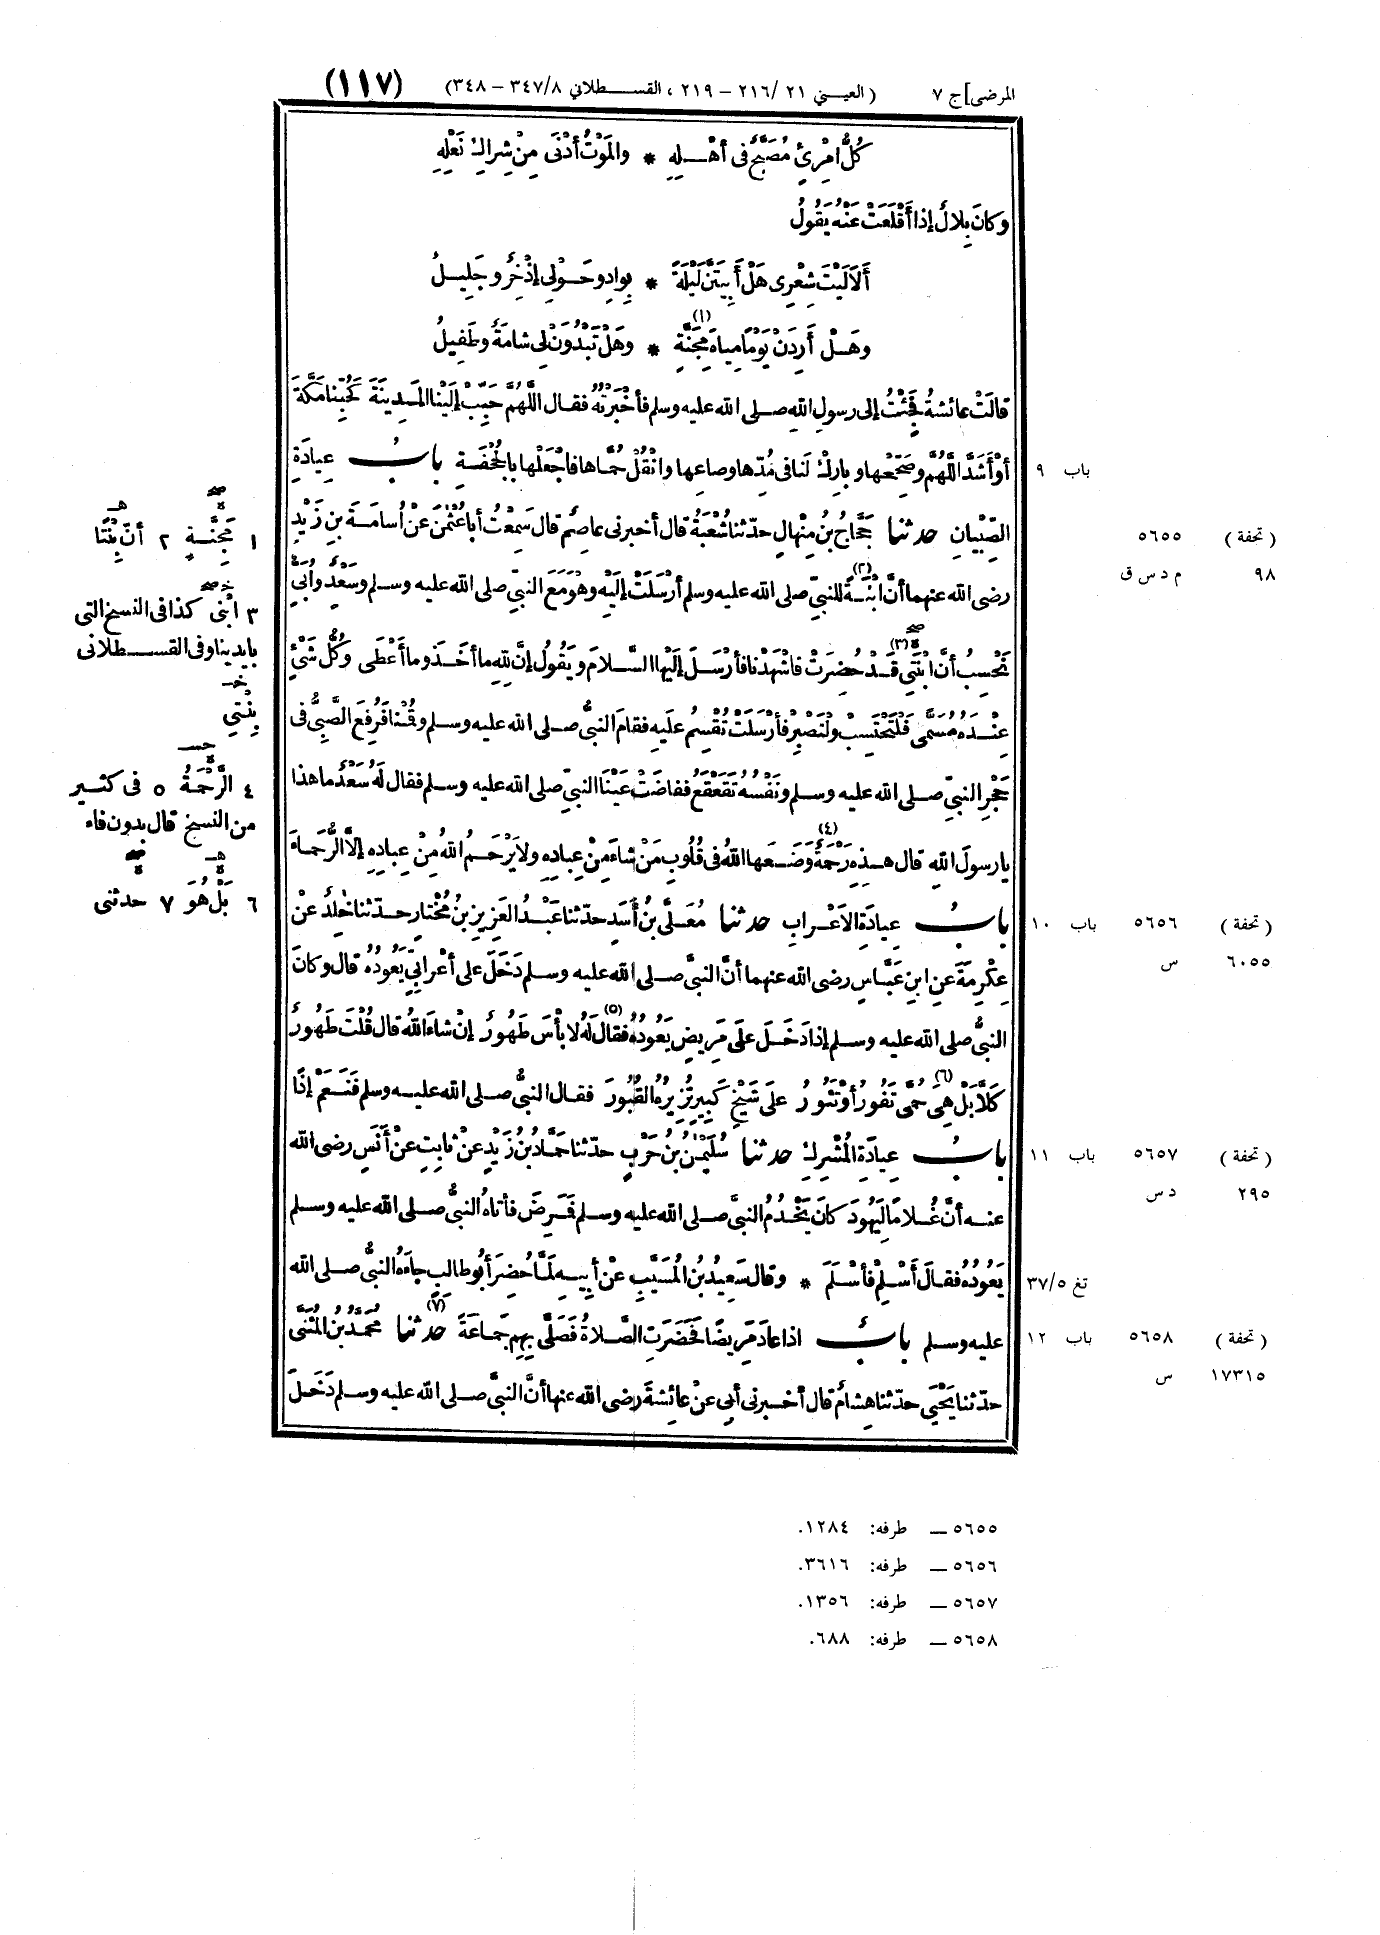 المرضى] ج ٧ (العيني ٢١ /٢١٦ – ٢١٩ ، القسطلاني ٣٤٧/٨ – ٣٤٨) (١١٧)
كُلُّ امْرِئٍ مُصَبَّحٌ فى أَهْلِهِ * والمَوْتُ أَدْنَى مِنْ شِراكِ نَعْلِهِ
وكانَ بِلالٌ إذا أَقْلَعَتْ عَنْهُ يَقُولُ
أَلاَ لَيْتَ شِعْرِى هَلْ أَبِيتَنَّ لَيْلَةً * بِوادٍ وحَوْلِى إذْخِرٌ وجَلِيلُ
وهَلْ أَرِدَنْ يَوْمًا مِياهَ مِجَنَّةٍ (١) * وهَلْ تَبْدُوَنْ لِى شامَةٌ وطَفِيلُ
قالَتْ عائشةُ فَجِئْتُ إلى رسولِ اللهِ صلى الله عليه وسلم فأخْبَرْتُهُ فقال اللَّهُمَّ حَبِّبْ إلَيْنا المَدِينَةَ كَحُبِّنا مَكَّةَ
أوْ أَشَدَّ اللَّهُمَّ وصَحِّحْها وبارِكْ لَنا فى مُدِّها وصاعِها وانْقُلْ حُمَّاها فاجْعَلْها بالجُحْفَةِ بابُ عِيادَةِ
الصِّبْيانِ حدثنا حَجَّاجُ بنُ مِنْهالٍ حدّثنا شُعْبَةُ قال أخبرنى عاصِمٌ قال سَمِعْتُ أباعُثْمٰنَ عنْ أُسامَةَ بنِ زَيْدٍ
رضى الله عنهما أنَّ ابْنَةً (٢) للنبيّ صلى الله عليه وسلم أرْسَلَتْ إلَيْهِ وهْوَ مَعَ النبيّ صلى الله عليه وسلم وسَعْدٌ وأُبَيٌّ
نَحْسِبُ أنَّ ابْنَتِى (٣) قَدْ حُضِرَتْ فاشْهَدْنا فأرْسَلَ إلَيْها السَّلامَ ويَقُولُ إنَّ لِلهِ ما أخَذَ وما أَعْطَى وكُلُّ شَىْءٍ
عِنْدَهُ مُسَمًّى فَلْتَحْتَسِبْ ولْتَصْبِرْ فأرْسَلَتْ تُقْسِمُ علَيهِ فقامَ النبيُّ صلى الله عليه وسلم وقُمْنا فَرُفِعَ الصَّبِىُّ فى
حَجْرِ النبيّ صلى الله عليه وسلم ونَفْسُهُ تَقَعْقَعُ ففاضَتْ عَيْنا النبيّ صلى الله عليه وسلم فقال لَهُ سَعْدٌ ما هذا
يا رسولَ اللهِ قال هذِهِ رَحْمَةٌ (٤) وَضَعَها اللهُ فى قُلُوبِ مَنْ شاءَ مِنْ عِبادِهِ ولا يَرْحَمُ اللهُ مِنْ عِبادِهِ إلاَّ الرُّحَماءَ
بابُ عِيادَةِ الأَعْرابِ حدثنا مُعَلَّى بنُ أَسَدٍ حدّثنا عَبْدُ العَزِيزِ بنُ مُخْتارٍ حدّثنا خٰلِدٌ عنْ
عِكْرِمَةَ عنِ ابنِ عَبَّاسٍ رضى الله عنهما أنَّ النبيَّ صلى الله عليه وسلم دَخَلَ على أعْرابِىٍّ يَعُودُهُ قال وكانَ
النبيُّ صلى الله عليه وسلم إذا دَخَلَ علَى مَرِيضٍ يَعُودُهُ فقال (٥) لَهُ لا بأْسَ طَهُورٌ إنْ شاءَ اللهُ قال قُلْتَ طَهُورٌ
كَلاَّ بَلْ هِىَ (٦) حُمَّى تَفُورُ أوْ تَثُورُ علَى شَيْخٍ كَبِيرٍ تُزِيرُهُ القُبُورَ فقال النبيُّ صلى الله عليه وسلم فَنَعَمْ إذًا
بابُ عِيادَةِ المُشْرِكِ حدثنا سُلَيْمٰنُ بنُ حَرْبٍ حدّثنا حَمَّادُ بنُ زَيْدٍ عنْ ثابِتٍ عنْ أنَسٍ رضى الله
عنه أنَّ غُلامًا لِيَهُودَ كانَ يَخْدُمُ النبيَّ صلى الله عليه وسلم فَمَرِضَ فأتاهُ النبيُّ صلى الله عليه وسلم
يَعُودُهُ فقال أَسْلِمْ فأَسْلَمَ * وقال سَعِيدُ بنُ المُسَيَّبِ عنْ أبِيهِ لَمَّا حُضِرَ أبُوطالِبٍ جاءَهُ النبيُّ صلى الله
عليه وسلم بابٌ اذا عادَ مَرِيضًا فَحَضَرَتِ الصَّلاةُ فَصَلَّى بِهِمْ جَماعَةً حدثنا (٧) مُحَمَّدُ بنُ المُثَنَّى
حدّثنا يَحْيَى حدّثنا هِشامٌ قال أخبرنى أبِى عنْ عائِشَةَ رضى الله عنها أنَّ النبيَّ صلى الله عليه وسلم دَخَلَ
باب ٩
(تحفة) ٥٦٥٥
٩٨ م د س ق
(تحفة) ٥٦٥٦ باب ١٠
٦٠٥٥ س
(تحفة) ٥٦٥٧ باب ١١
٢٩٥ د س
تغ ٣٧/٥
(تحفة) ٥٦٥٨ باب ١٢
١٧٣١٥ س
١ مَجَنَّةٍ ٢ أنّ بِنْتًا
٣ ابْنِى كذا فى النسخ التى
بايدينا وفى القسطلانى
بِنْتِي
٤ الرَّحْمَةُ ٥ فى كثير
من النسخ قال بدون فاء
٦ بَلْ هُوَ ٧ حدثنى
٥٦٥٥ — طرفه: ١٢٨٤.
٥٦٥٦ — طرفه: ٣٦١٦.
٥٦٥٧ — طرفه: ١٣٥٦.
٥٦٥٨ — طرفه: ٦٨٨.